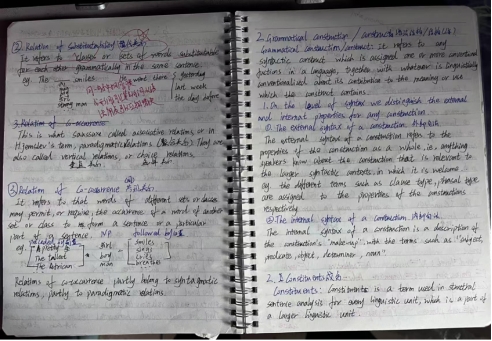 ② Relation of Substitutability (替代关系)
It refers to classes or sets of words substitutable
for each other grammatically in the same sentence.
eg. The smiles
man
yesterday
last week
the day before
3. Relation of Co-occurrence
This is what Saussure called associative relations, or in
Hjemslev's term, paradigmatic relations. They are
also called vertical relations, or choice relations.
③ Relation of Co-occurrence 共现关系
It refers to that words of different sets or classes
may permit, or require, the occurrence of a word of another
set or class to form a sentence or a particular
part of a sentence. NP followed by
eg. preceded by
A pretty girl smiles
The tallest boy
The American man breathe
Relations of co-occurrence partly belong to syntagmatic
relations, partly to paradigmatic relations.
2. Grammatical construction / constructs
Grammatical construction/construct: it refers to any
syntactic construct which is assigned one or more conventional
functions in a language, together with whatever is linguistically
conventionalized about its contribution to the meaning or use
which the construct contains.
1. On the level of syntax we distinguish the external
and internal properties for any construction.
① The external syntax of a construction
The external syntax of a construction refers to the
properties of the construction as a whole, i.e. anything
speakers know about the construction that is relevant to
the larger syntactic contexts in which it is welcome.
eg. the different terms such as clause type, phrasal type
are assigned to the properties of the constructions
respectively.
② The internal syntax of a construction
The internal syntax of a construction is a description of
the construction's "make-up", with the terms such as "subject,
predicate, object, determiner, noun"
2. Constituents
Constituents: Constituents is a term used in structural
sentence analysis for every linguistic unit, which is a part of
a larger linguistic unit.